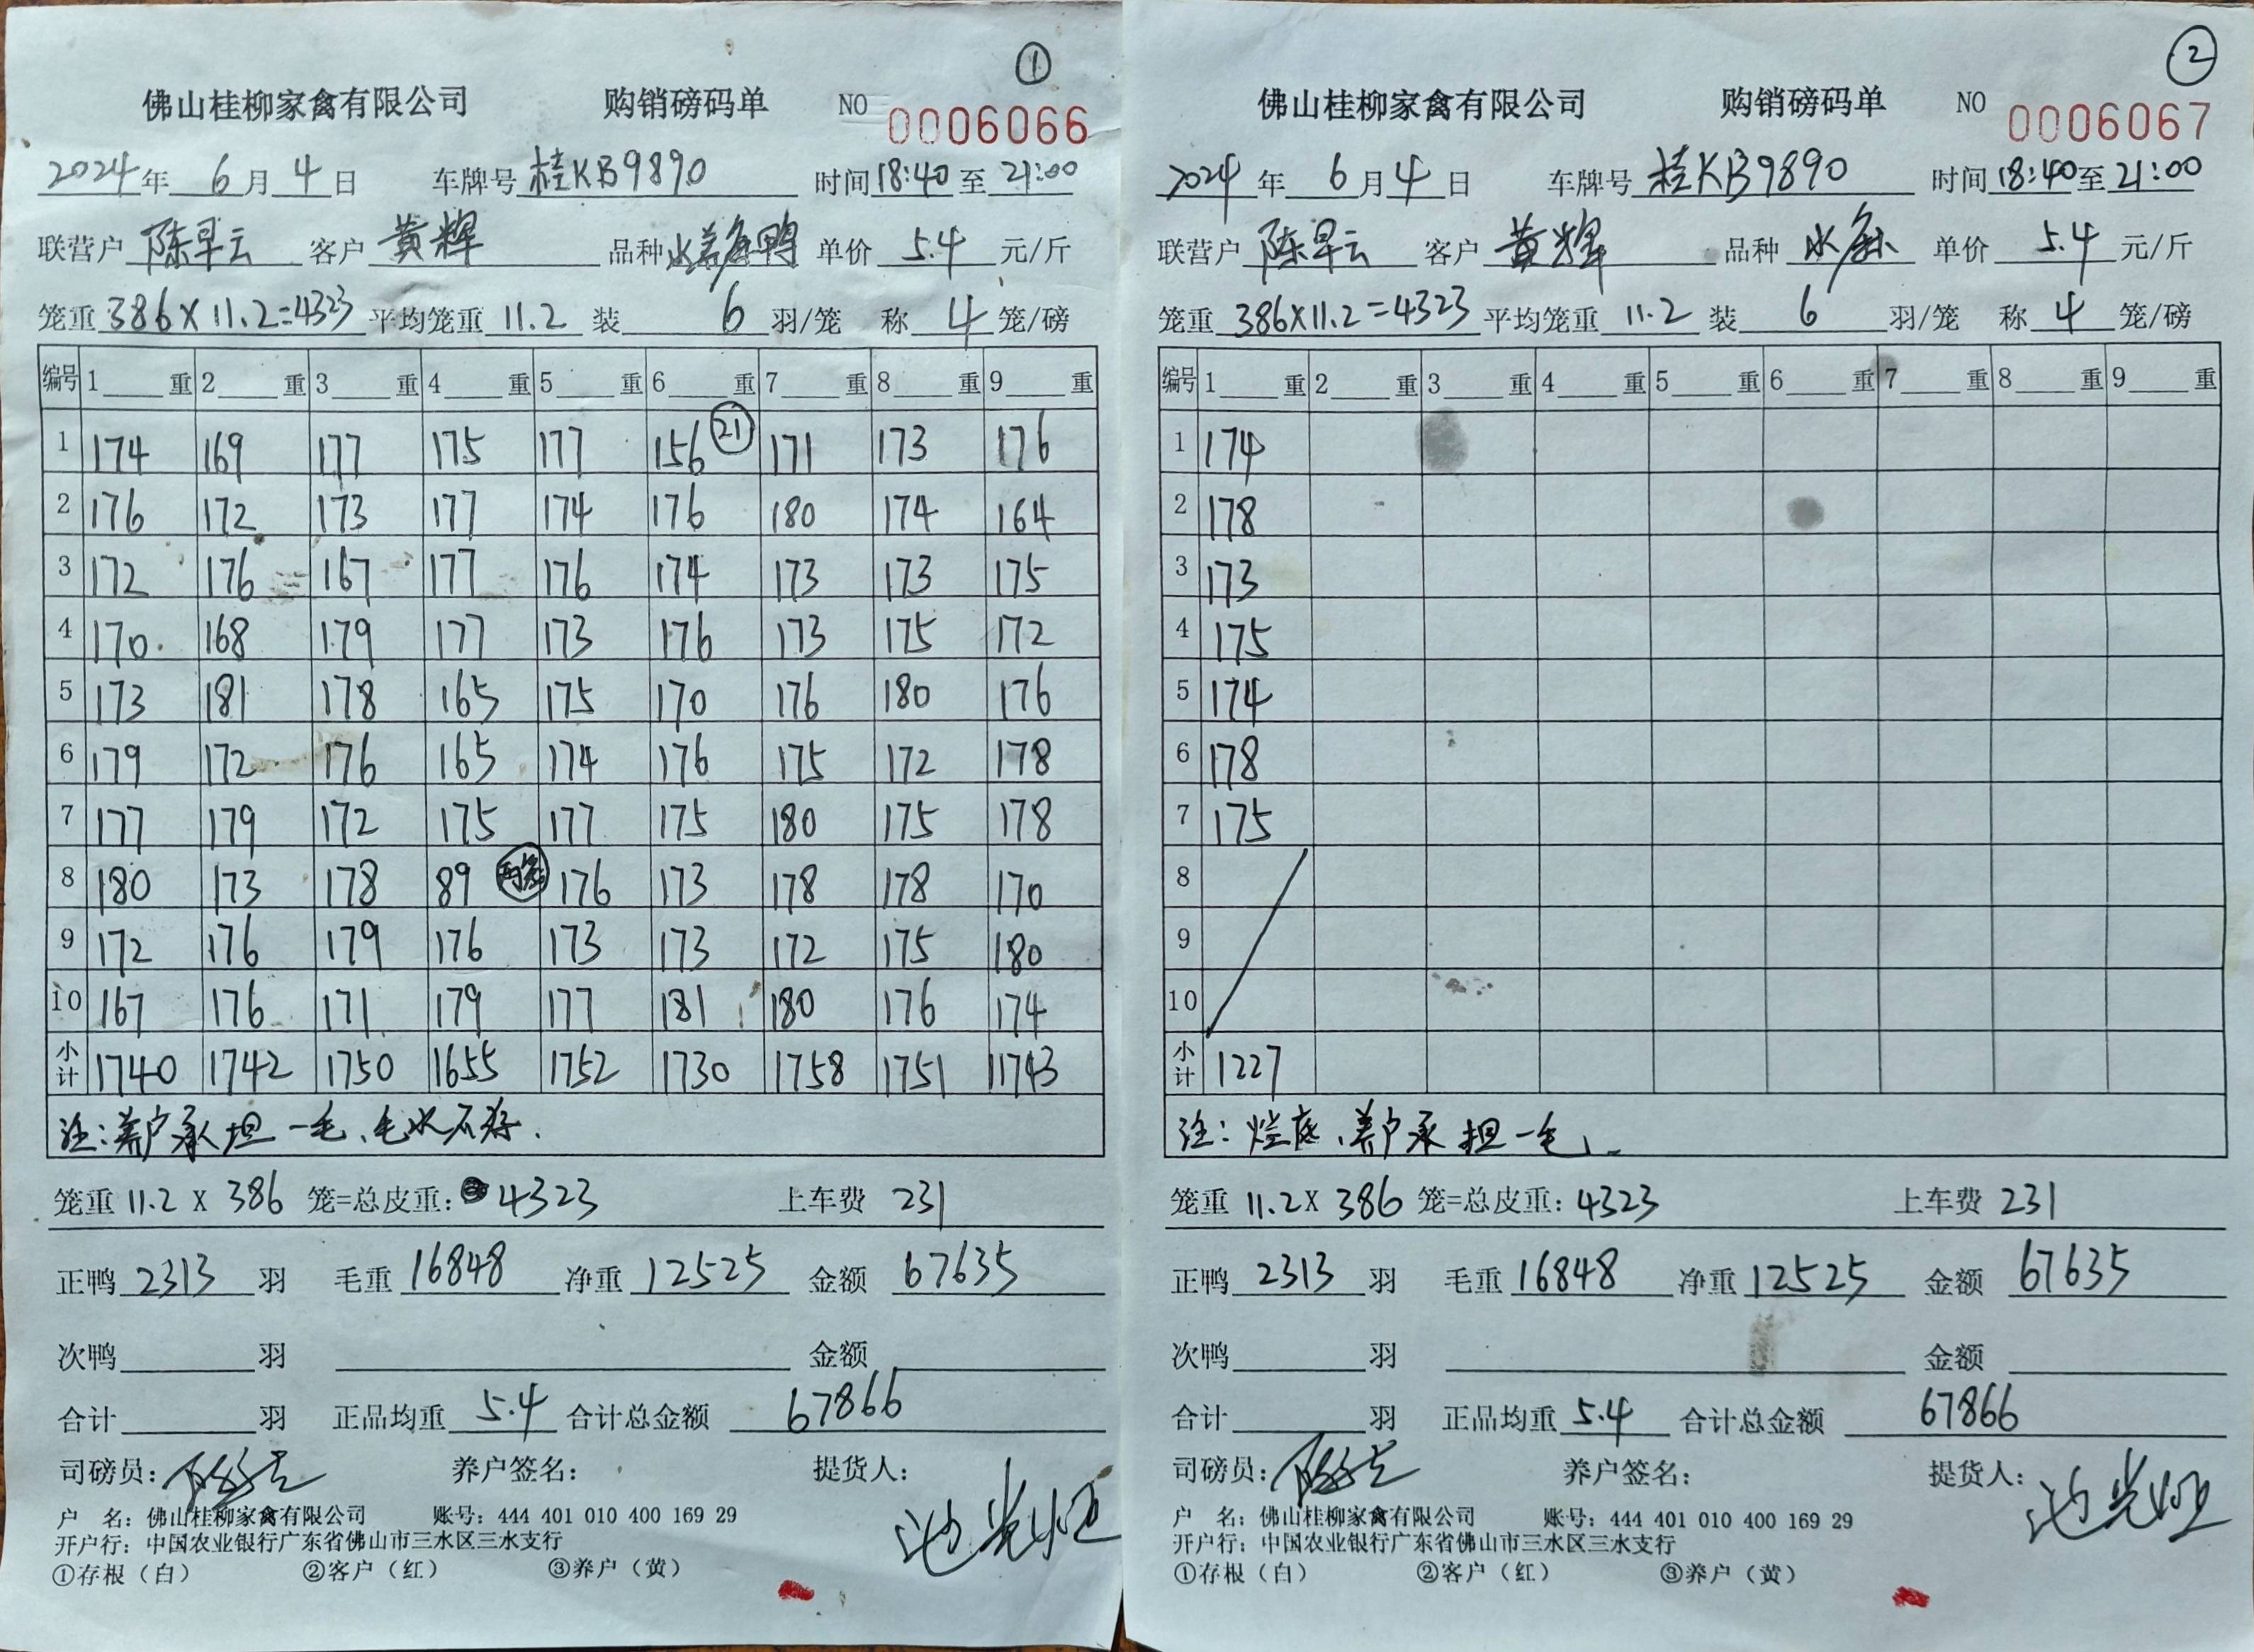 ①
佛山桂柳家禽有限公司 购销磅码单 NO 0006066
2024年 6月 4日 车牌号 桂KB9890 时间 18:40 至 21:00
联营户 陈早云 客户 黄辉 品种 单价 5.4 元/斤
笼重 386×11.2=4323 平均笼重 11.2 装 6 羽/笼 称 4 笼/磅
编号 1 重 2 重 3 重 4 重 5 重 6 重 7 重 8 重 9 重
1 174 169 177 175 177 156 ㉑ 171 173 176
2 176 172 173 177 174 176 180 174 164
3 172 176 167 177 176 174 173 173 175
4 170 168 179 177 173 176 173 175 172
5 173 181 178 165 175 170 176 180 176
6 179 172 176 165 174 176 175 172 178
7 177 179 172 175 177 175 180 175 178
8 180 173 178 89 176 173 178 178 170
9 172 176 179 176 173 173 172 175 180
10 167 176 171 179 177 181 180 176 174
小计 1740 1742 1750 1655 1752 1730 1758 1751 1743
注:养户承担一毛、毛水不存.
笼重 11.2 x 386 笼=总皮重: 4323 上车费 231
正鸭 2313 羽 毛重 16848 净重 12525 金额 67635
次鸭 羽 金额
合计 羽 正品均重 5.4 合计总金额 67866
司磅员: 养户签名: 提货人:
户 名: 佛山桂柳家禽有限公司 账号: 444 401 010 400 169 29
开户行: 中国农业银行广东省佛山市三水区三水支行
①存根(白) ②客户(红) ③养户(黄)
②
佛山桂柳家禽有限公司 购销磅码单 NO 0006067
2024 年 6月 4日 车牌号 桂KB9890 时间 18:40 至 21:00
联营户 陈早云 客户 黄辉 品种 单价 5.4 元/斤
笼重 386×11.2=4323 平均笼重 11.2 装 6 羽/笼 称 4 笼/磅
编号 1 重 2 重 3 重 4 重 5 重 6 重 7 重 8 重 9 重
1 174
2 178
3 173
4 175
5 174
6 178
7 175
8
9
10
小计 1227
注:烂底、养户承担一毛、
笼重 11.2 x 386 笼=总皮重: 4323 上车费 231
正鸭 2313 羽 毛重 16848 净重 12525 金额 67635
次鸭 羽 金额
合计 羽 正品均重 5.4 合计总金额 67866
司磅员: 养户签名: 提货人:
户 名: 佛山桂柳家禽有限公司 账号: 444 401 010 400 169 29
开户行: 中国农业银行广东省佛山市三水区三水支行
①存根(白) ②客户(红) ③养户(黄)